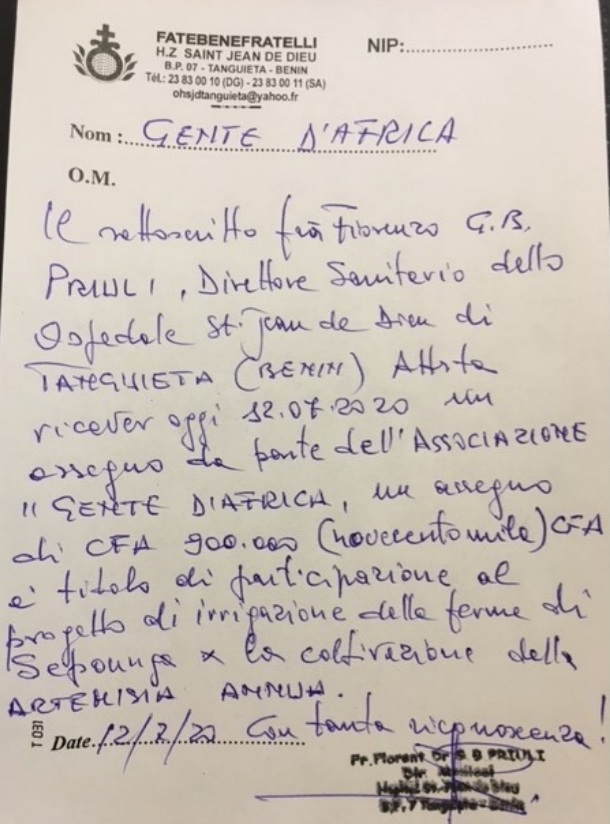 FATEBENEFRATELLI
H.Z SAINT JEAN DE DIEU
B.P. 07 - TANGUIETA - BENIN
Tél.: 23 83 00 10 (DG) - 23 83 00 11 (SA)
ohsjdtanguieta@yahoo.fr
NIP:
Nom : GENTE D'AFRICA
O.M.
Il sottoscritto fra Fiorenzo G.B.
PRIULI, Direttore Sanitario dello
Ospedale St. Jean de Dieu di
TANGUIETA (BENIN) Attesta
ricever oggi 12.07.2020 un
assegno da parte dell'ASSOCIAZIONE
"GENTE D'AFRICA, un assegno
di CFA 900.000 (novecentomila) CFA
a titolo di participazione al
progetto di irrigazione della ferme di
Sepounga x la coltivazione della
ARTEMISIA ANNUA.
T 031
Date 12/7/20 Con tanta riconoscenza!
Fr. Florent Dr G B PRIULI
B.P. 7 Tanguieta - Benin